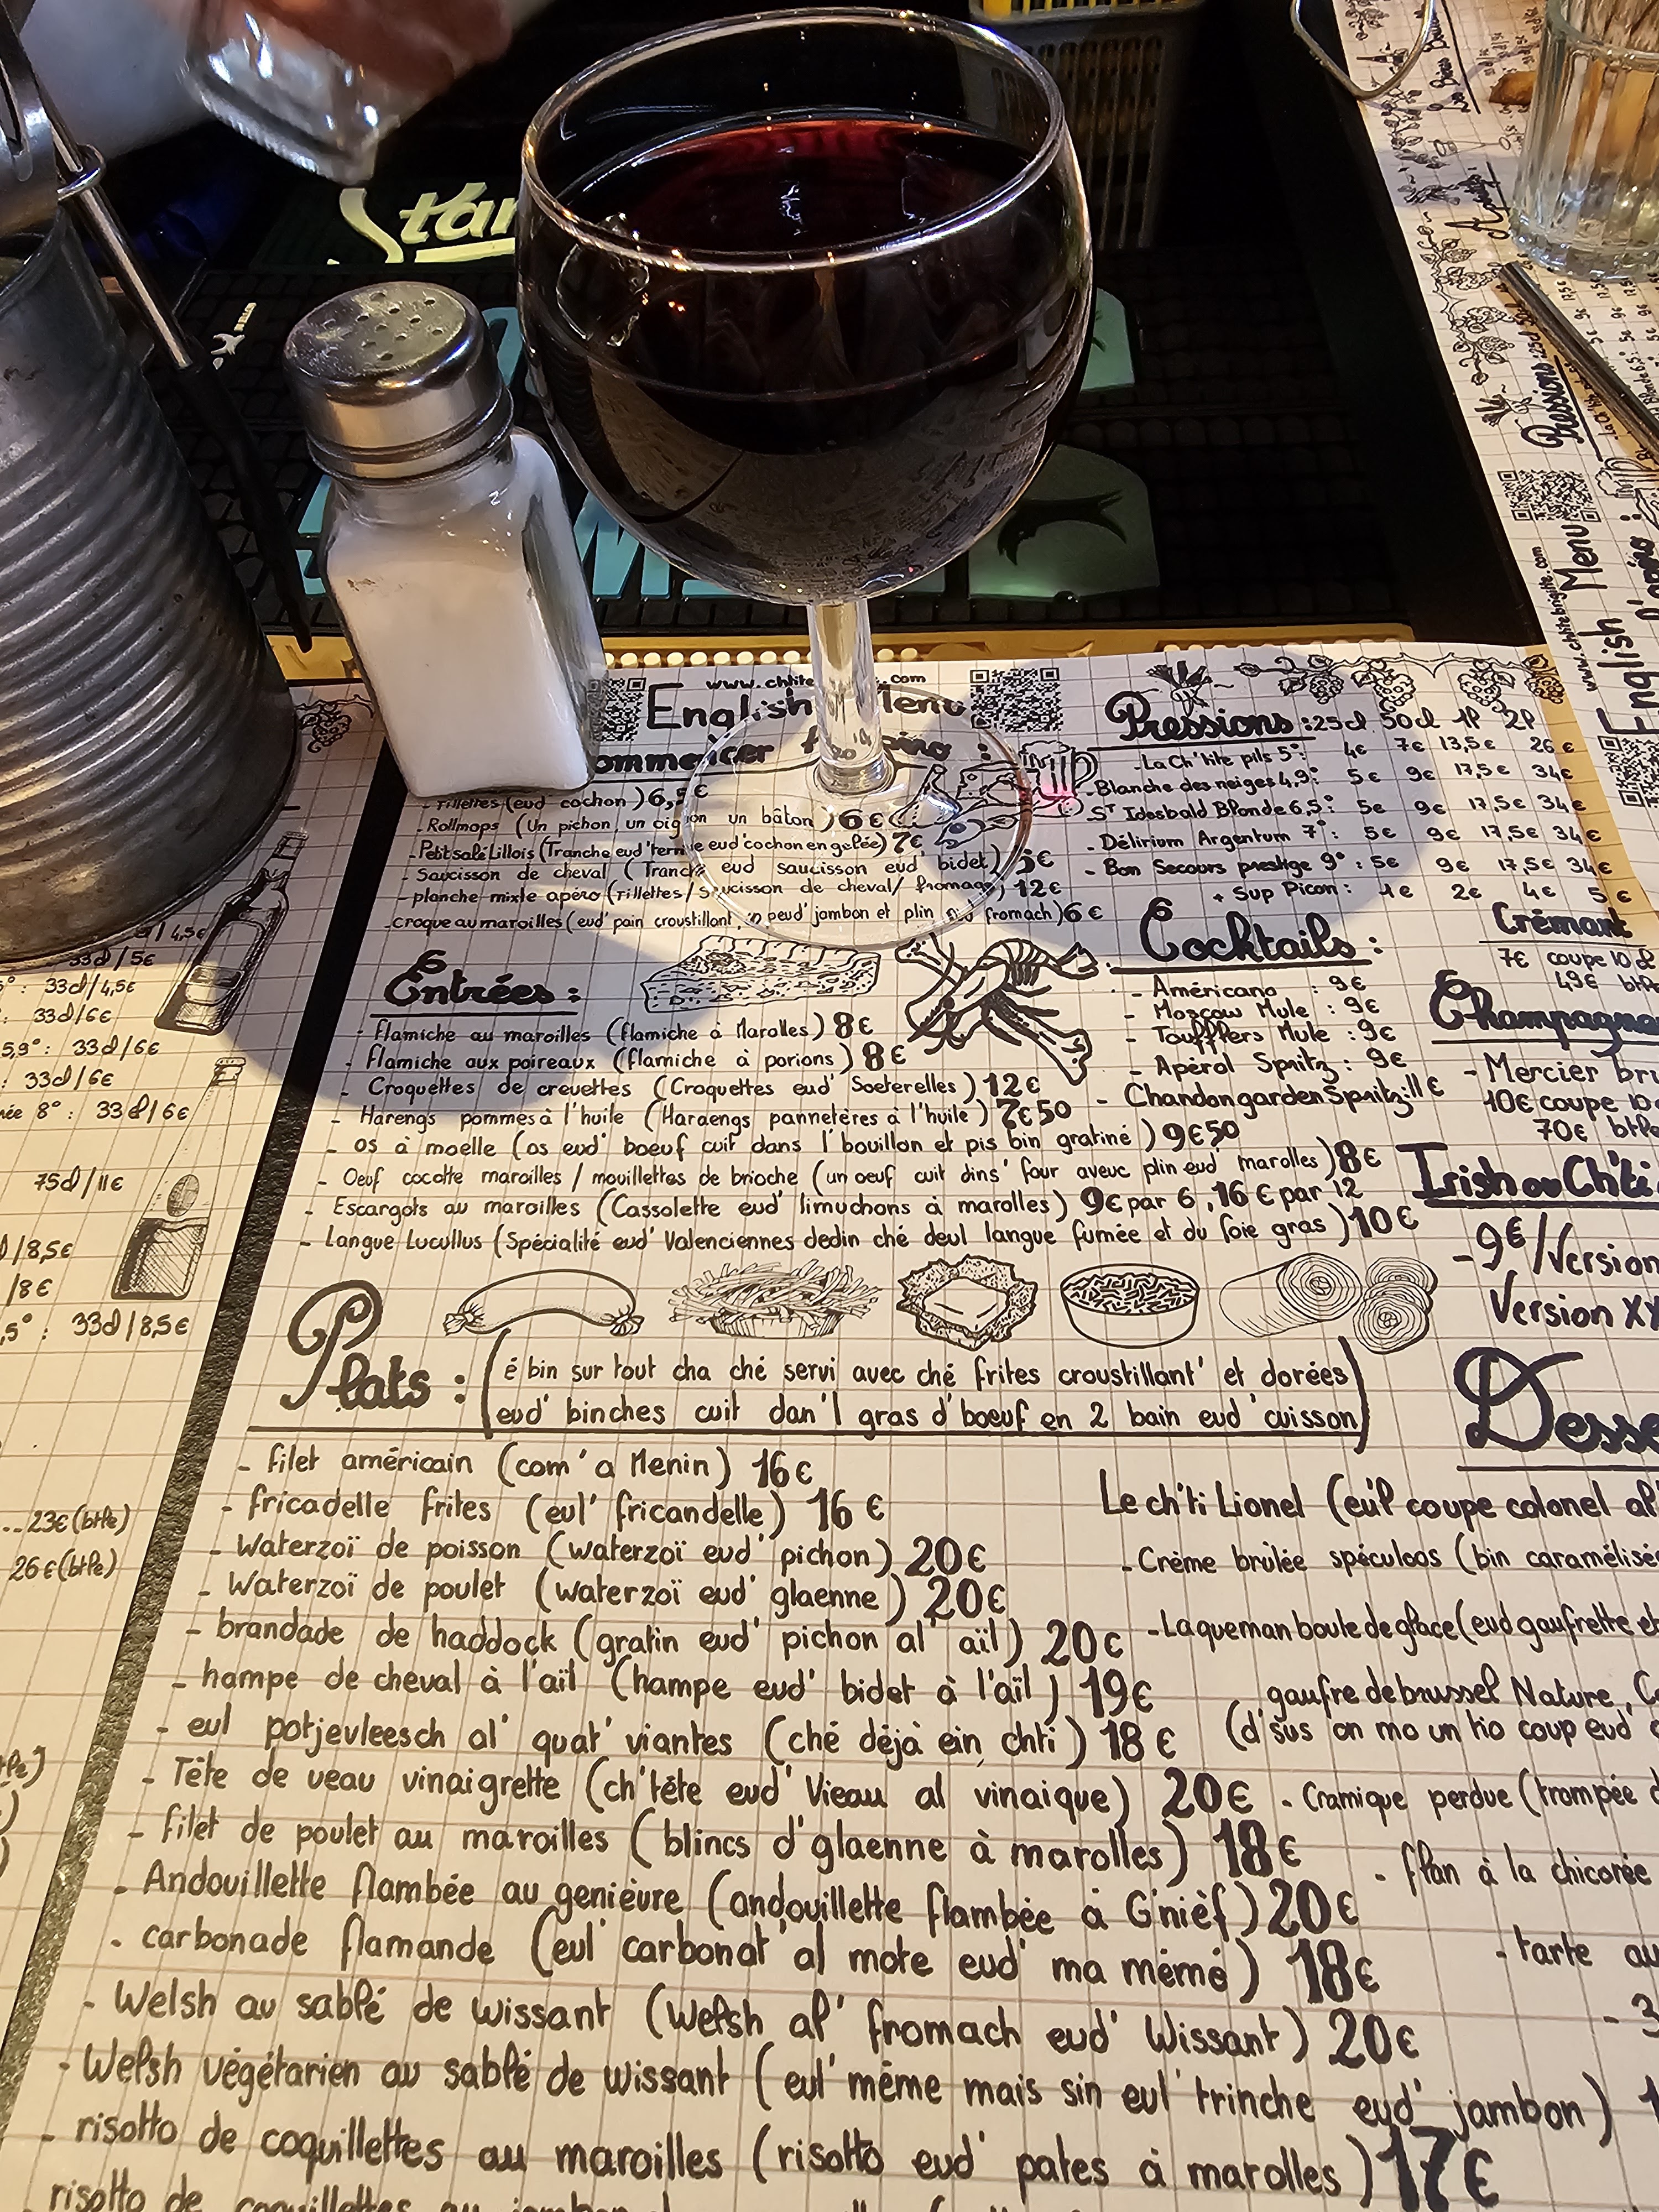 www.chtite
.com
English Menu
- Rillettes (eud cochon) 6,5€
- Rollmops (Un pichon un oignon un bâton) 6€
- Petit salé Lillois (Tranche eud' terrine eud' cochon en gelée) 7€
- Saucisson de cheval (Tranche eud saucisson eud' bidet) 5€
- planche mixte apéro (rillettes / Saucisson de cheval / fromage) 12€
- croque au maroilles (eud' pain croustillant, peud' jambon et plin fromach) 6€
Pressions : 25cl 50cl 1P 2P
- La Ch'tite pils 5° : 4€ 7€ 13,5€ 26€
- Blanche des neiges 4,9° : 5€ 9€ 17,5€ 34€
- ST Idesbald Blonde 6,5° : 5€ 9€ 17,5€ 34€
- Délirium Argentum 7° : 5€ 9€ 17,5€ 34€
- Bon Secours prestige 9° : 5€ 9€ 17,5€ 34€
+ Sup Picon : 1€ 2€ 4€ 5€
Cocktails :
- Américano : 9€
- Moscow Mule : 9€
- Toufflers Mule : 9€
- Apérol Spritz : 9€
- Chandon garden Spritz : 11€
Crémant
7€ coupe 10cl
49€ btle
Champagne
- Mercier bru
10€ coupe 10
70€ btle
Irish ou Ch'ti
- 9€/Version
Version XX
Entrées :
- flamiche au maroilles (flamiche à Marolles) 8€
- flamiche aux poireaux (flamiche à porions) 8€
- Croquettes de crevettes (Croquettes eud' Soeterelles) 12€
- Harengs pommes à l'huile (Haraengs pannetères à l'huile) 7€50
- os à moelle (os eud' boeuf cuit dans l'bouillon et pis bin gratiné) 9€50
- Oeuf cocotte maroilles / mouillettes de brioche (un oeuf cuit dins' four aveuc plin eud' marolles) 8€
- Escargots au maroilles (Cassolette eud' limuchons à marolles) 9€ par 6, 16€ par 12
- Langue Lucullus (Spécialité eud' Valenciennes dedin ché deul langue fumée et du foie gras) 10€
Plats : (é bin sur tout cha ché servi avec ché frites croustillant' et dorées
eud' binches cuit dan'l gras d'boeuf en 2 bain eud' cuisson)
- filet américain (com' a Menin) 16€
- fricadelle frites (eul' fricandelle) 16€
- Waterzoï de poisson (waterzoï eud' pichon) 20€
- Waterzoï de poulet (waterzoï eud' glaenne) 20€
- brandade de haddock (gratin eud' pichon al' aïl) 20€
- hampe de cheval à l'aïl (hampe eud' bidet à l'aïl) 19€
- eul potjevleesch al' quat' viantes (ché déjà ein chti) 18€
- Tête de veau vinaigrette (ch'tête eud' Vieau al vinaique) 20€
- filet de poulet au maroilles (blincs d'glaenne à marolles) 18€
- Andouillette flambée au genièvre (andouillette flambée à G'nièf) 20€
- carbonade flamande (eul' carbonat' al mote eud' ma mémé) 18€
- Welsh au sablé de wissant (Welsh al' fromach eud' Wissant) 20€
- Welsh végétarien au sablé de wissant (eul' même mais sin eul' trinche eud' jambon) 1
- risotto de coquillettes au maroilles (risotto eud' pates à marolles) 17€
risotto de coquillettes au jambon
Desse
Le ch'ti Lionel (eul' coupe colonel al'
- Crème brûlée spéculoos (bin caramélisé
- La queman boule de glace (eud gaufrette et
gaufre de brussel Nature,
(d'sus on mo un tio coup eud'
- Cramique perdue (trompée d
- flan à la chicorée
- tarte au
- 3
/ 4,5€
33cl / 5€
° : 33cl / 4,5€
: 33cl / 6€
5,9° : 33cl / 6€
: 33cl / 6€
ée 8° : 33cl / 6€
75cl / 11€
/ 8,5€
/ 8€
,5° : 33cl / 8,5€
.. 23€ (btle)
26€ (btle)
Star
www.chtitebrigitte.com
English Menu
Pressions